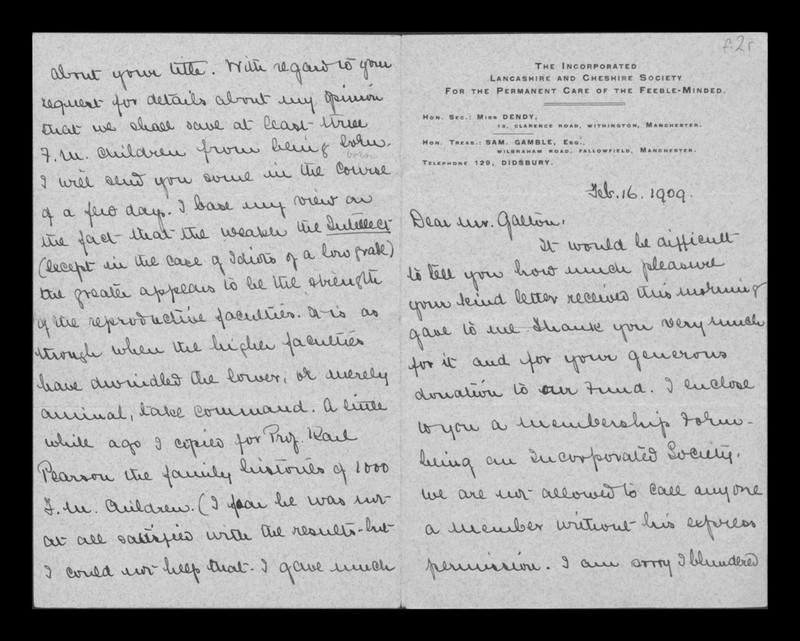 A2r
THE INCORPORATED
LANCASHIRE AND CHESHIRE SOCIETY
FOR THE PERMANENT CARE OF THE FEEBLE-MINDED.
HON. SEC.: MISS DENDY,
13, CLARENCE ROAD, WITHINGTON, MANCHESTER.
HON. TREAS.: SAM. GAMBLE, ESQ.,
WILBRAHAM ROAD, FALLOWFIELD, MANCHESTER.
TELEPHONE 129, DIDSBURY.
Feb. 16. 1909.
Dear Mr. Galton,
It would be difficult
to tell you how much pleasure
your kind letter received this morning
gave to me. Thank you very much
for it and for your generous
donation to our Fund. I enclose
to you a membership Form-
being an Incorporated Society,
we are not allowed to call anyone
a member without his express
permission. I am sorry I blundered
about your title. With regard to your
request for details about my opinion
that we shall save at least three
F.M. children from being born.
born
I will send you some in the course
of a few days. I base my view on
the fact that the weaker the Intellect
(except in the case of Idiots of a low grade)
the greater appears to be the strength
of the reproductive faculties. It is as
though when the higher faculties
have dwindled the lower, or merely
animal, take command. A little
while ago I copied for Prof. Karl
Pearson the family histories of 1000
F.M. Children. (I fear he was not
at all satisfied with the results-but
I could not help that. I gave much